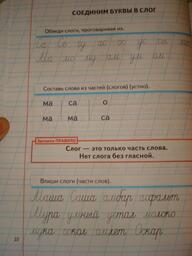 СОЕДИНИМ БУКВЫ В СЛОГ
Обведи слоги, проговаривая их.
Ма мо му ам ум
Составь слова из частей (слогов) (устно).
ма са о
ма ма са
Запомни ПРАВИЛО!
Слог — это только часть слова.
Нет слога без гласной.
Впиши слоги (части слов).
Маша Саша амбар асфальт
Мура умный устал молоко
мука оскал омлет Оскар
22